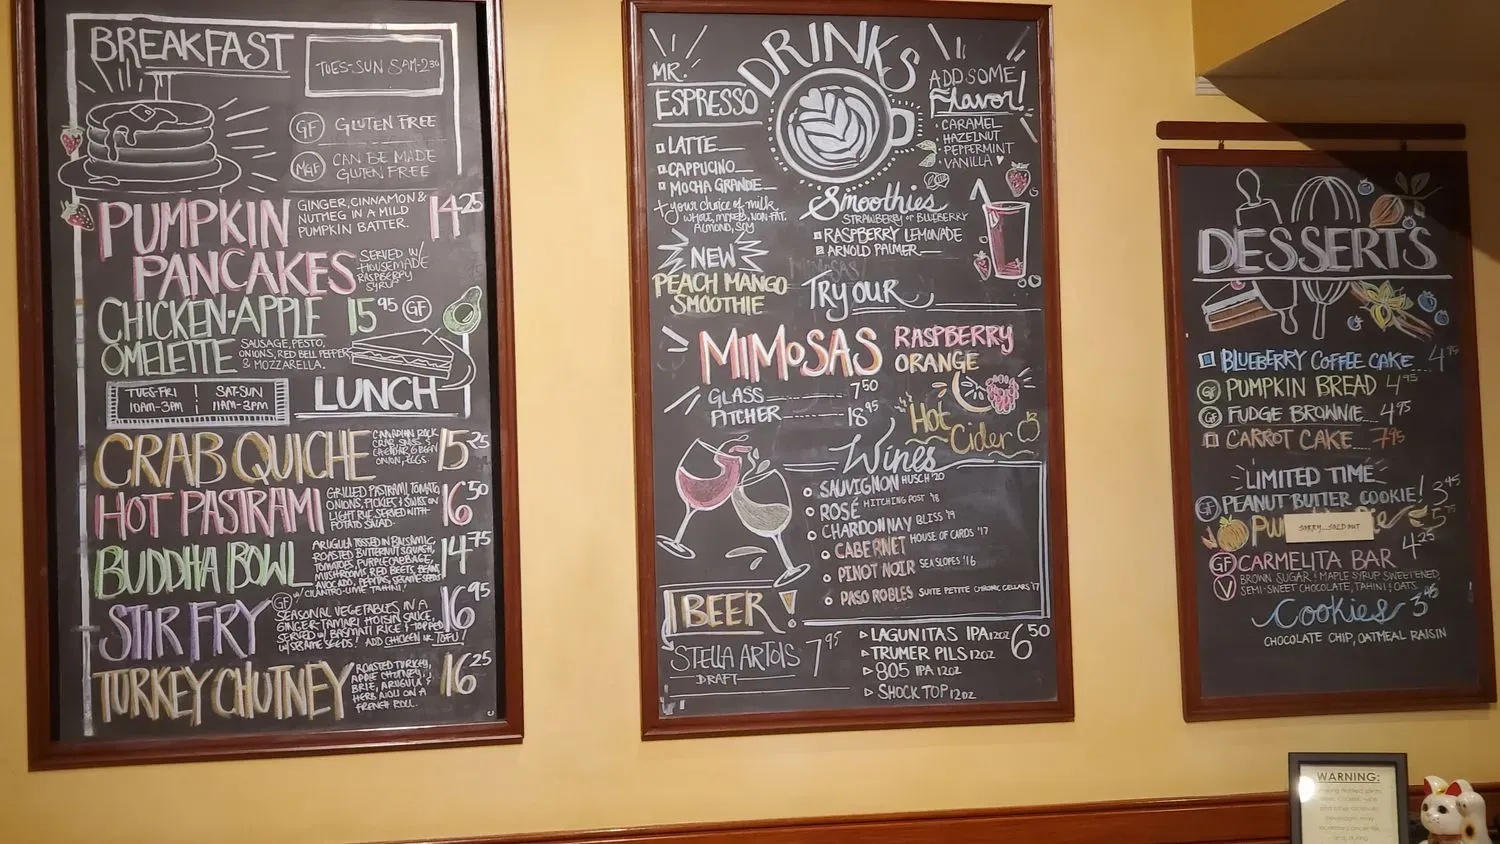 BREAKFAST
TUES-SUN 8AM-2:30
GF GLUTEN FREE
MGF CAN BE MADE
GLUTEN FREE
PUMPKIN
PANCAKES
GINGER, CINNAMON &
NUTMEG IN A MILD
PUMPKIN BATTER.
14.25
SERVED W/
HOUSEMADE
RASPBERRY
SYRUP
CHICKEN-APPLE
OMELETTE
15.95 GF
SAUSAGE, PESTO,
ONIONS, RED BELL PEPPER
& MOZZARELLA.
TUES-FRI
10AM-3PM
SAT-SUN
11AM-3PM
LUNCH
CRAB QUICHE
CANADIAN ROCK
CRAB, SWISS &
GREEN
ONION, EGGS.
15.25
HOT PASTRAMI
GRILLED PASTRAMI, TOMATO,
ONIONS, PICKLES & SWISS ON
LIGHT RYE. SERVED WITH
POTATO SALAD.
16.50
BUDDHA BOWL
ARUGULA TOSSED IN BALSAMIC,
ROASTED BUTTERNUT SQUASH,
TOMATOES, PURPLE CABBAGE,
MUSHROOMS, RED BEETS, BEANS,
AVOCADO, PEPITAS, SESAME SEEDS
W/ CILANTRO-LIME TAHINI!
14.75
STIR FRY
GF
SEASONAL VEGETABLES IN A
GINGER-TAMARI HOISIN SAUCE,
SERVED W/ BASMATI RICE & TOPPED
W/ SESAME SEEDS! ADD CHICKEN OR TOFU!
16.95
TURKEY CHUTNEY
ROASTED TURKEY,
APPLE CHUTNEY,
BRIE, ARUGULA &
HERB AIOLI ON A
FRENCH ROLL.
16.25
DRINKS
MR.
ESPRESSO
LATTE
CAPPUCINO
MOCHA GRANDE
+ your choice of milk
WHOLE, MIXED, NON FAT,
ALMOND, SOY
NEW
PEACH MANGO
SMOOTHIE
ADD SOME
Flavor!
CARAMEL
HAZELNUT
PEPPERMINT
VANILLA
Smoothies
STRAWBERRY OR BLUEBERRY
RASPBERRY LEMONADE
ARNOLD PALMER
TRY OUR
MIMOSAS
RASPBERRY
ORANGE
GLASS 7.50
PITCHER 18.95
Hot
Cider
Wines
SAUVIGNON HUSCH '20
ROSÉ HITCHING POST '18
CHARDONNAY BLISS '19
CABERNET HOUSE OF CARDS '17
PINOT NOIR SEA SLOPES '16
PASO ROBLES SUITE PETITE CHRONIC CELLARS '17
BEER!
STELLA ARTOIS 7.95
DRAFT
LAGUNITAS IPA 12OZ
TRUMER PILS 12OZ
805 IPA 12OZ
SHOCK TOP 12OZ
6.50
DESSERTS
BLUEBERRY COFFEE CAKE
GF PUMPKIN BREAD 4.95
GF FUDGE BROWNIE 4.95
CARROT CAKE 7.95
LIMITED TIME
GF PEANUT BUTTER COOKIE! 3.45
SORRY...SOLD OUT
GF CARMELITA BAR 4.25
V BROWN SUGAR & MAPLE SYRUP SWEETENED,
SEMI-SWEET CHOCOLATE, TAHINI & OATS
Cookies
CHOCOLATE CHIP, OATMEAL RAISIN
WARNING: